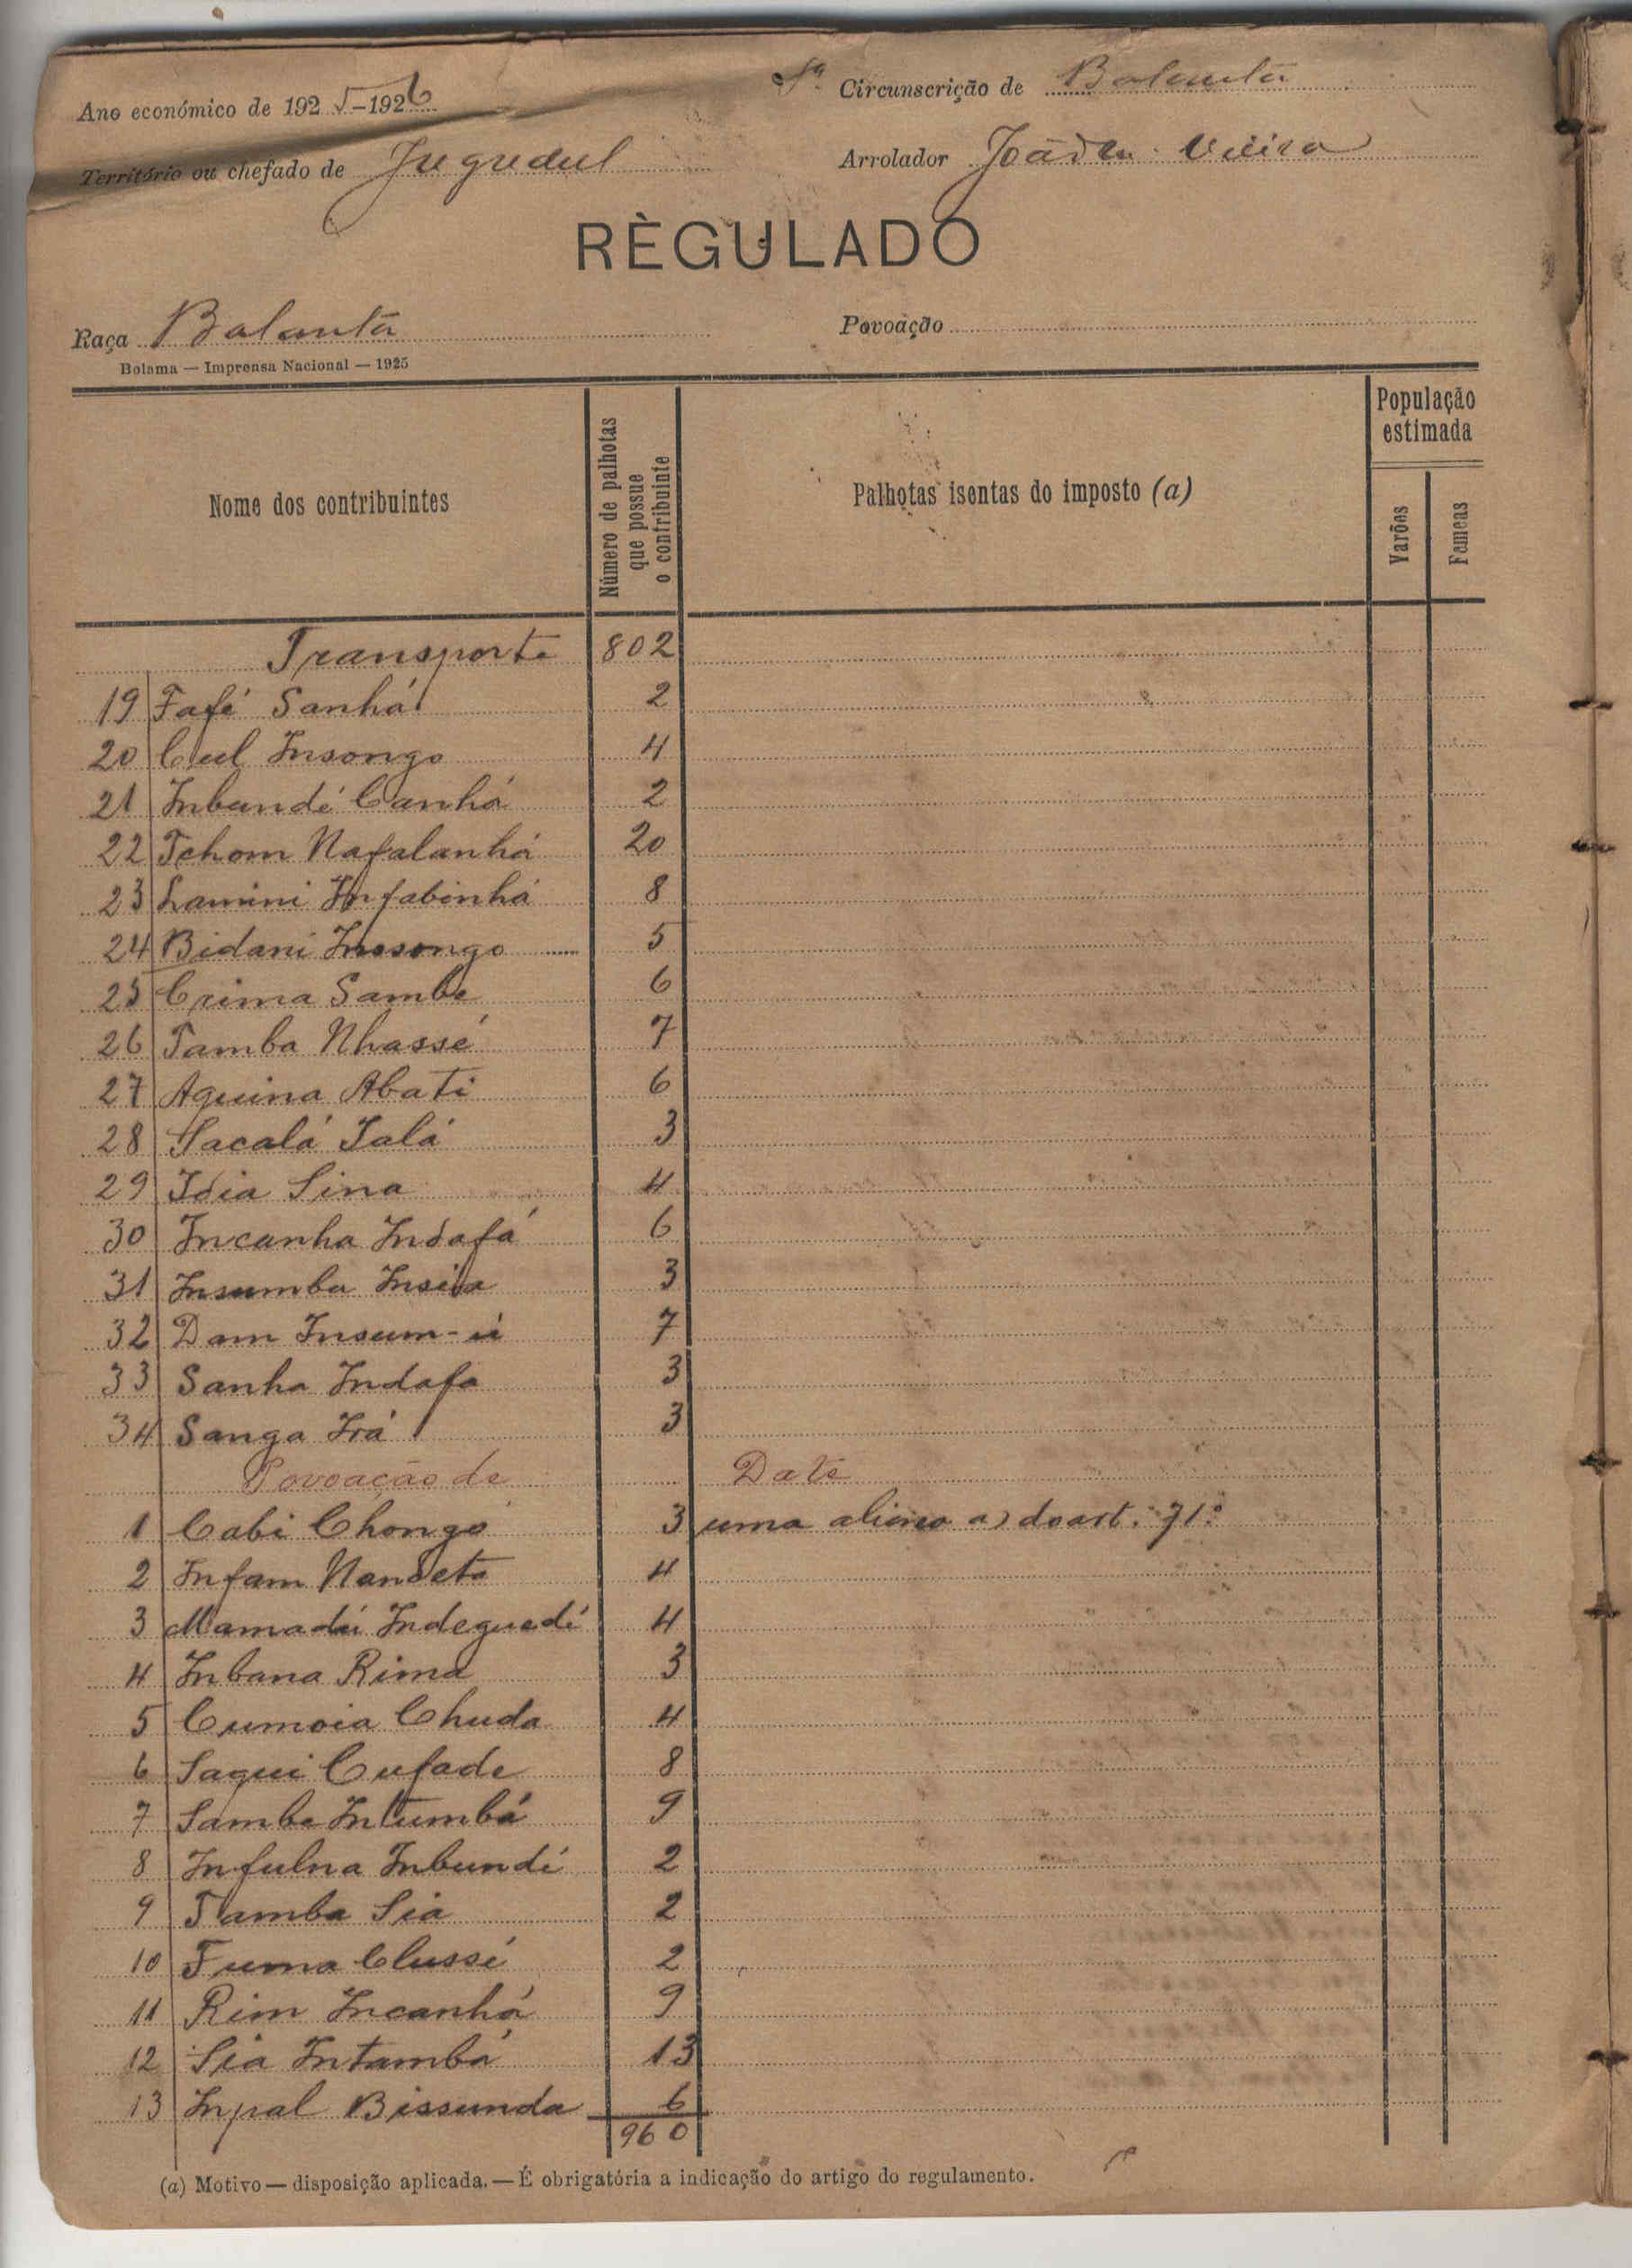 Ano económico de 1925-1926
Circunscrição de Balanta
Território ou chefado de Jugudul
Arrolador João Vieira
RÈGULADO
Raça Balanta
Povoação
Bolama — Imprensa Nacional — 1925
Nome dos contribuintes
Número de palhotas que possue o contribuinte
Palhotas isentas do imposto (a)
População estimada
Varões
Fameas
Transporte 802
19 Fafé Sanhá 2
20 Cul Insongo 4
21 Inbundé Canhá 2
22 Tchom Nafalanhá 20
23 Lamini Infabinhá 8
24 Bidani Insongo 5
25 Crima Sambe 6
26 Tamba Nhassé 7
27 Aquina Abati 6
28 Sacalá Ialá 3
29 Idia Sina 4
30 Incanha Indafá 6
31 Insumba Insila 3
32 Dam Insum-ú 7
33 Sanha Indafa 3
34 Sanga Irá 3
Povoação de Daté
1 Cabi Chongo 3 uma alinea a) do art. 71.º
2 Infam Nandeta 4
3 Mamadú Indeguedé 4
4 Inbana Rima 3
5 Cumoia Chuda 4
6 Sagui Cufade 8
7 Sambe Intumbá 9
8 Infulna Inbundé 2
9 Tamba Siá 2
10 Fuma Clussé 2
11 Rim Incanhá 9
12 Siá Intambá 13
13 Inpal Bissunda 6
960
(a) Motivo — disposição aplicada. — É obrigatória a indicação do artigo do regulamento.